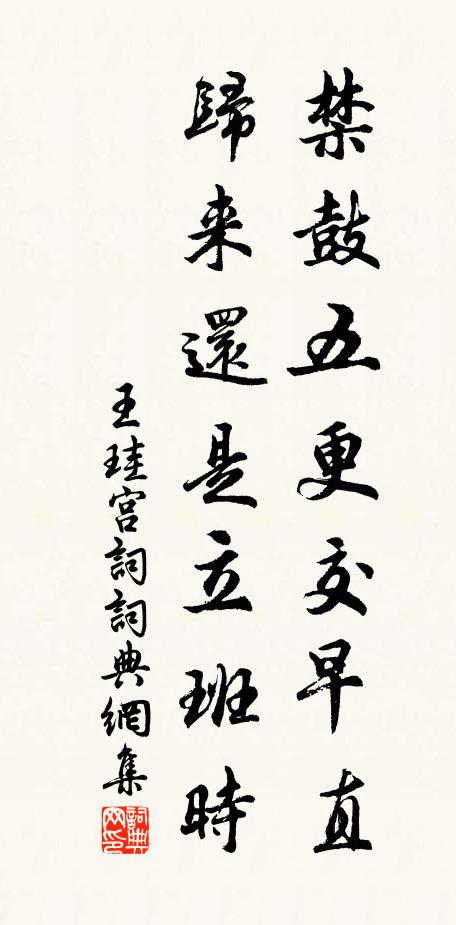 禁鼓五更交早直
歸来還是立班時
王珪宫詞詞典網集
詞典网印